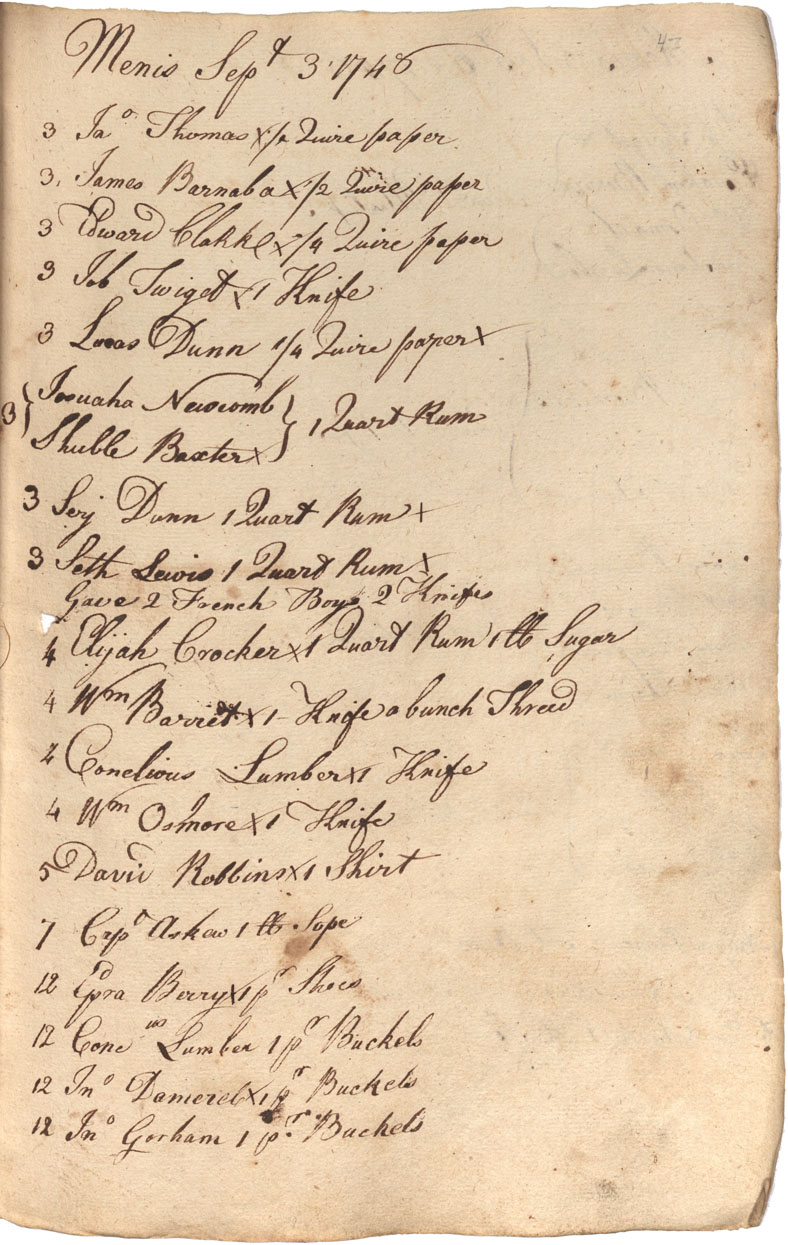 Menis Sept 3 1748
3 Jao Thomas x 1/2 Quire paper
3 James Barnaba x 1/2 Quire paper
3 Edward Clakke x 1/4 Quire paper
3 Job Twiget x 1 Knife
3 Lucas Dunn 1/4 Quire paper x
3 } Josuaha Newcomb } 1 Quart Rum
Shuble Baxter x
3 Serj Dunn 1 Quart Rum x
3 Seth Lewis 1 Quart Rum x
Gave 2 French Boys 2 Knifes
4 Elijah Crocker x 1 Quart Rum 1 lb Sugar
4 Wm Barriet x 1 Knife a bunch Threed
4 Conelious Lumber x 1 Knife
4 Wm Osmore x 1 Knife
5 David Robbins x 1 Shirt
7 Crpo Askew 1 lb Sope
12 Epra Berry x 1 pr Shoes
12 Coneius Lumber 1 pr Buckels
12 Jno Damerel x 1 pr Buckels
12 Jno Gorham 1 pr Buckels